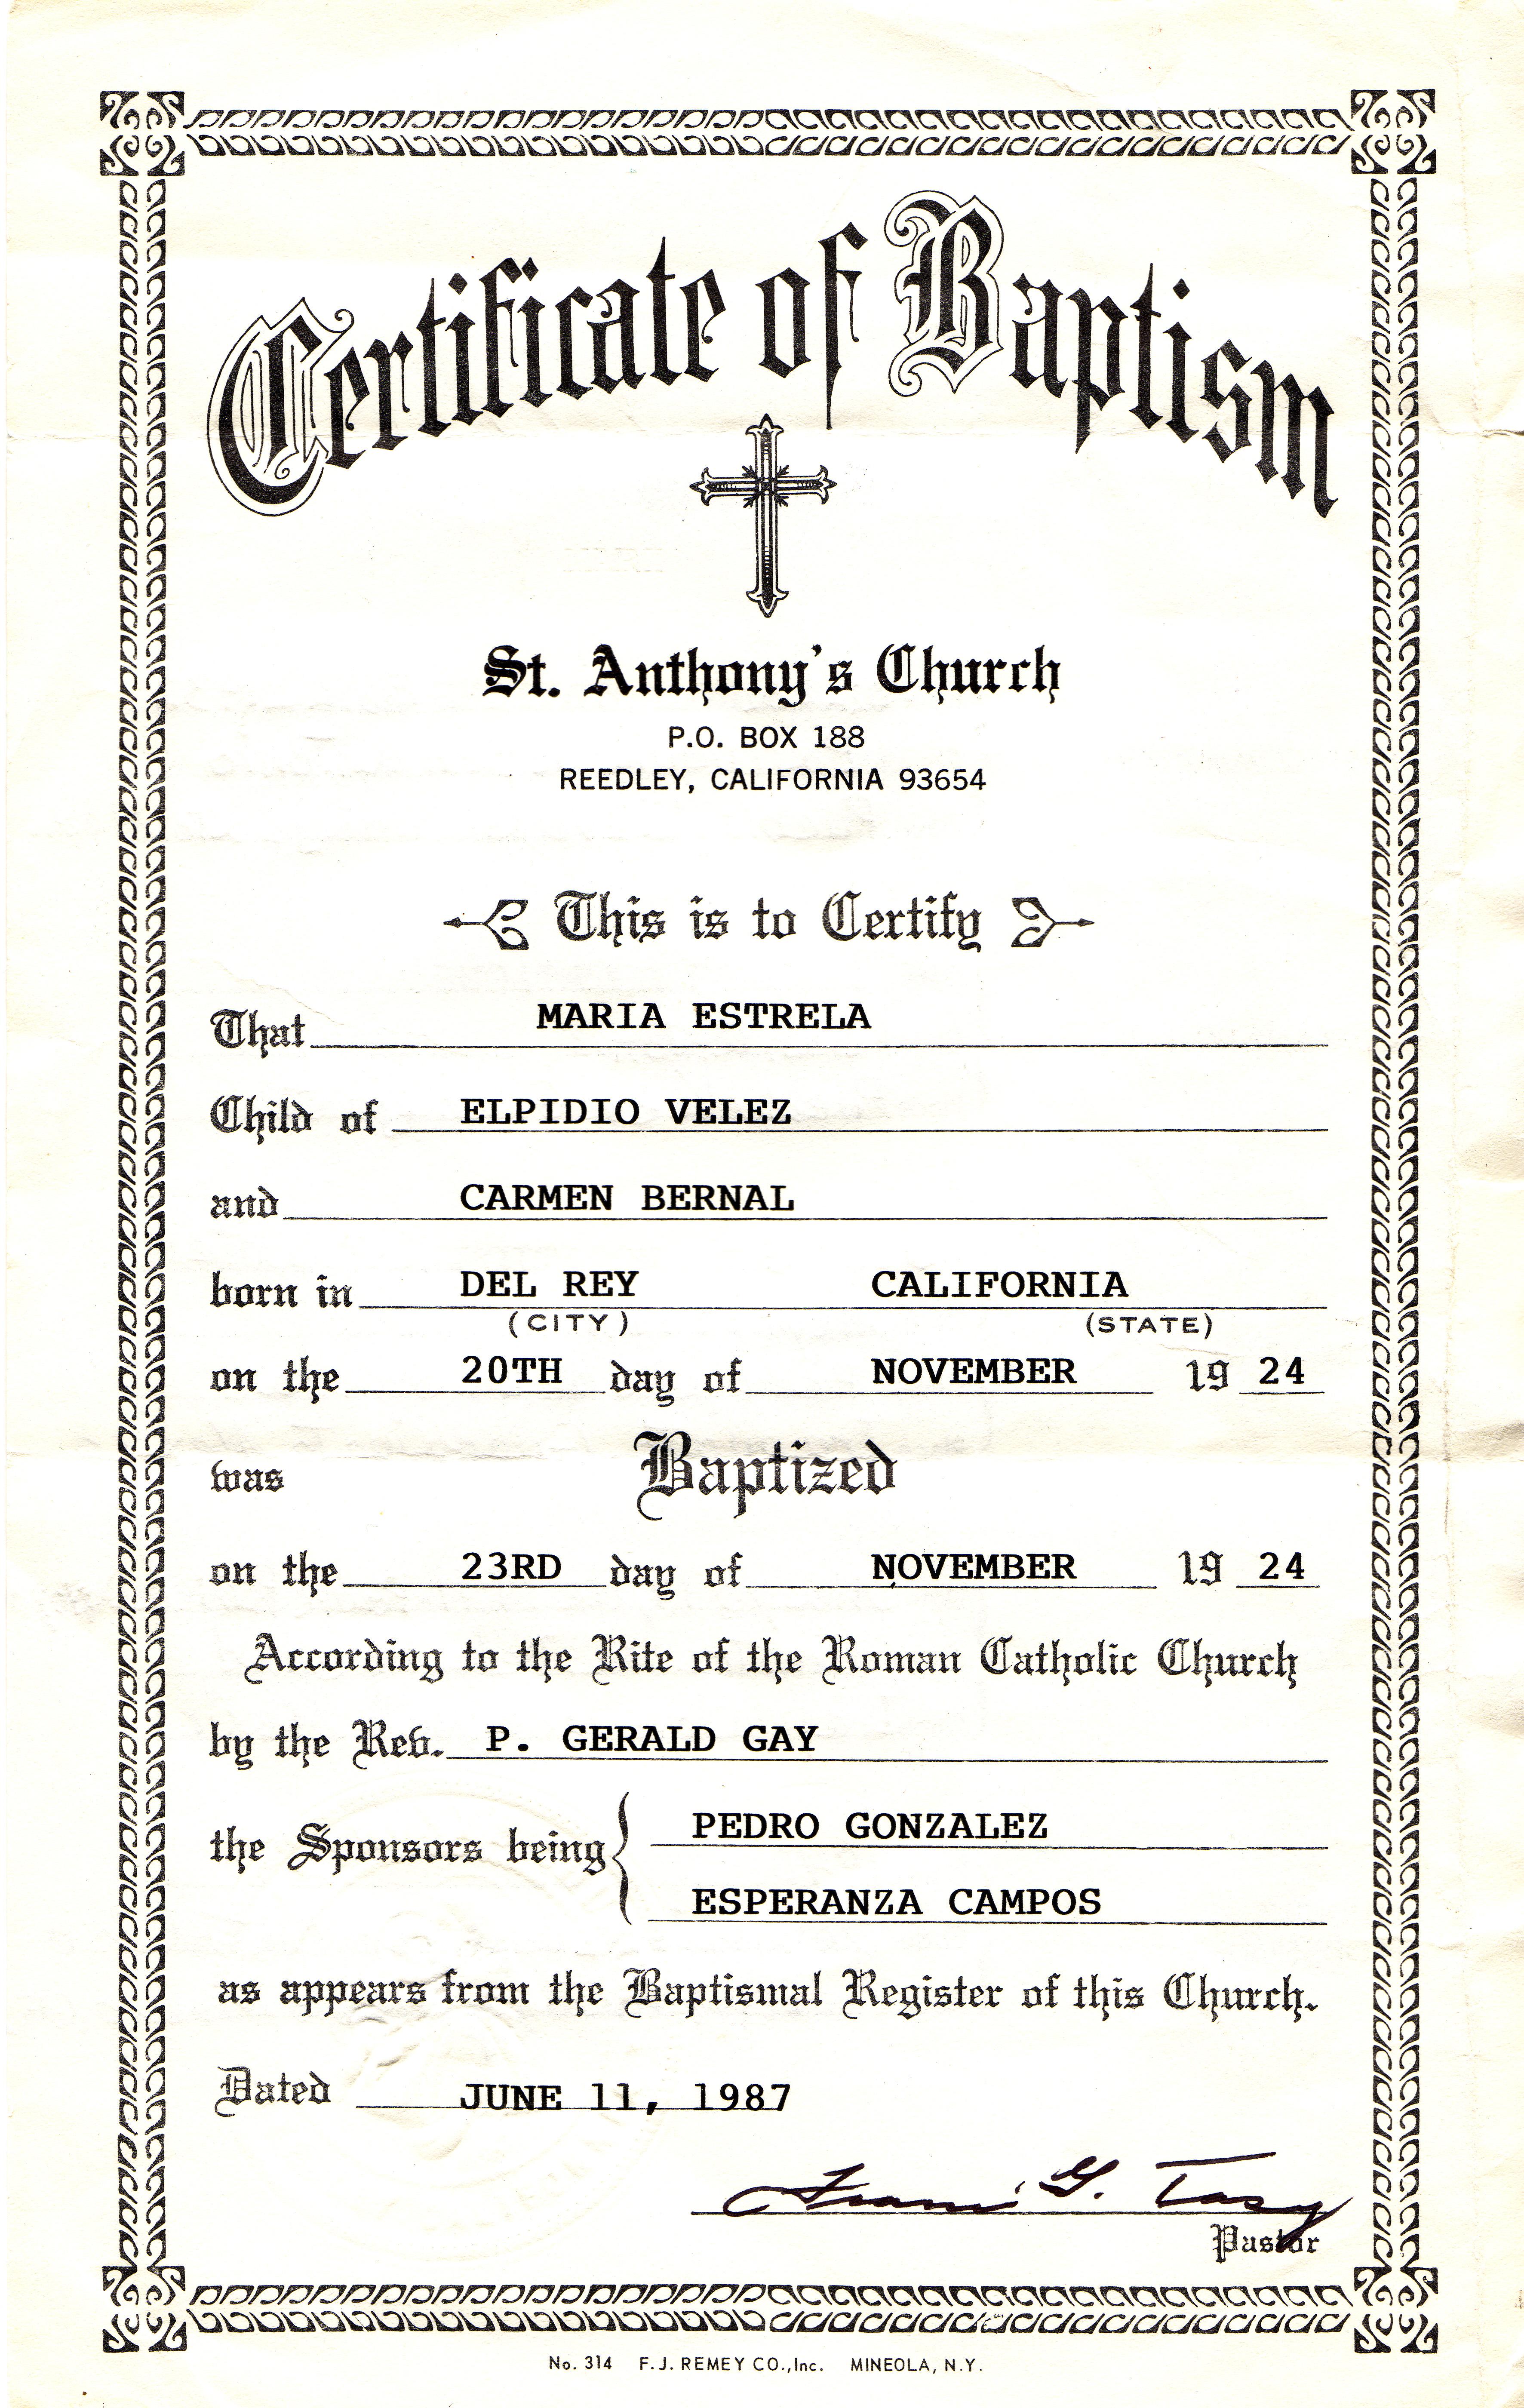 Certificate of Baptism
St. Anthony's Church
P.O. BOX 188
REEDLEY, CALIFORNIA 93654
This is to Certify
That MARIA ESTRELA
Child of ELPIDIO VELEZ
and CARMEN BERNAL
born in DEL REY CALIFORNIA
(CITY) (STATE)
on the 20TH day of NOVEMBER 19 24
was Baptized
on the 23RD day of NOVEMBER 19 24
According to the Rite of the Roman Catholic Church
by the Rev. P. GERALD GAY
the Sponsors being PEDRO GONZALEZ
ESPERANZA CAMPOS
as appears from the Baptismal Register of this Church.
Dated JUNE 11, 1987
G.
Pastor
No. 314 F.J. REMEY CO.,Inc. MINEOLA, N.Y.